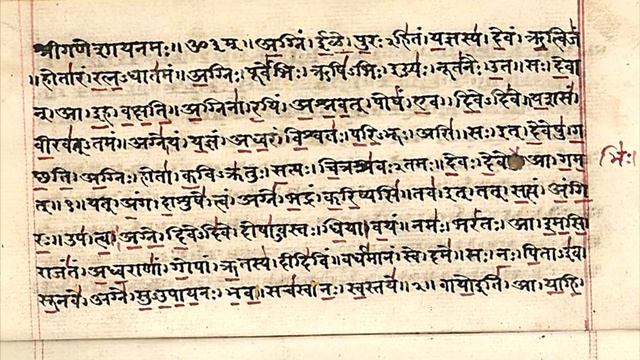 श्रीगणेशायनमः॥ॐ३म्॥अग्निं।ईळे।पुरःऽहितं।यज्ञस्य।देवं।ऋत्विजं
॥होतारं।रत्नऽधातमं॥अग्निः।पूर्वेभिः।ऋषिऽभिः।ईड्यः।नूतनैः।उत।सः।देवा
न्।आ।इह।वक्षति॥अग्निना।रयिं।अश्नवत्।पोषं।एव।दिवेऽदिवे।यशसं
वीरवत्ऽतमं॥अग्ने।यं।यज्ञं।अध्वरं।विश्वतः।परिऽभूः।असि।सः।इत्।देवेषु।ग
च्छति।अग्निः।होता।कविऽक्रतुः।सत्यः।चित्रश्रवःऽतमः।देवः।देवे आ।गम
त्॥१॥यत्।अंग।दाशुषे।त्वं।अग्ने।भद्रं।करिष्यसि।तव।इत्।तत्।सत्यं।अंगि
रः।उप।त्वा।अग्ने।दिवेऽदिवे।दोषाऽवस्तः।धिया।वयं।नमः।भरंतः।आ।इमसि
राजंतं।अध्वराणां।गोपां।ऋतस्य।दीदिविं।वर्धमानं।स्वे।दमे।सः।नः।पिताऽइव
सूनवे।अग्ने।सुऽउपायनः।भव।सचस्व।नः।स्वस्तये॥२॥वायोइति।आ।याहि
भिः।